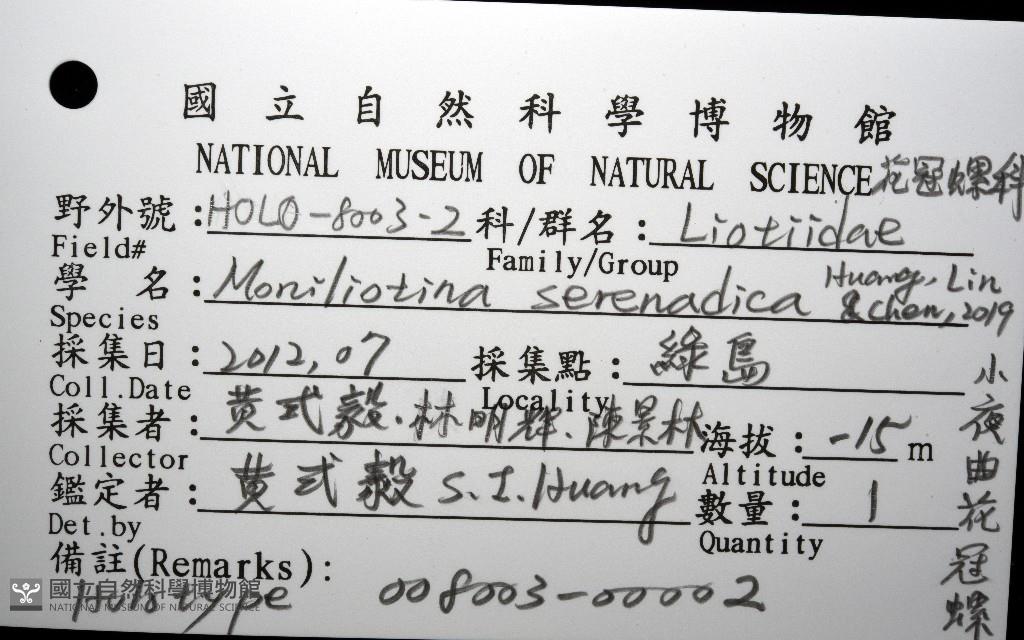 國立自然科學博物館
NATIONAL MUSEUM OF NATURAL SCIENCE 花冠螺科
野外號：HOLO-8003-2 科/群名：Liotiidae
Field# Family/Group
學名：Moniliotina serenadica Huang, Lin & Chen, 2019
Species
採集日：2012,07 採集點：綠島
Coll.Date Locality
採集者：黃式毅．林明輝、陳景林 海拔：-15 m
Collector Altitude
鑑定者：黃式毅 S. I. Huang 數量：1
Det.by Quantity
小夜曲花冠螺
備註(Remarks):
Holotype 008003-00002
國立自然科學博物館
NATIONAL MUSEUM OF NATURAL SCIENCE